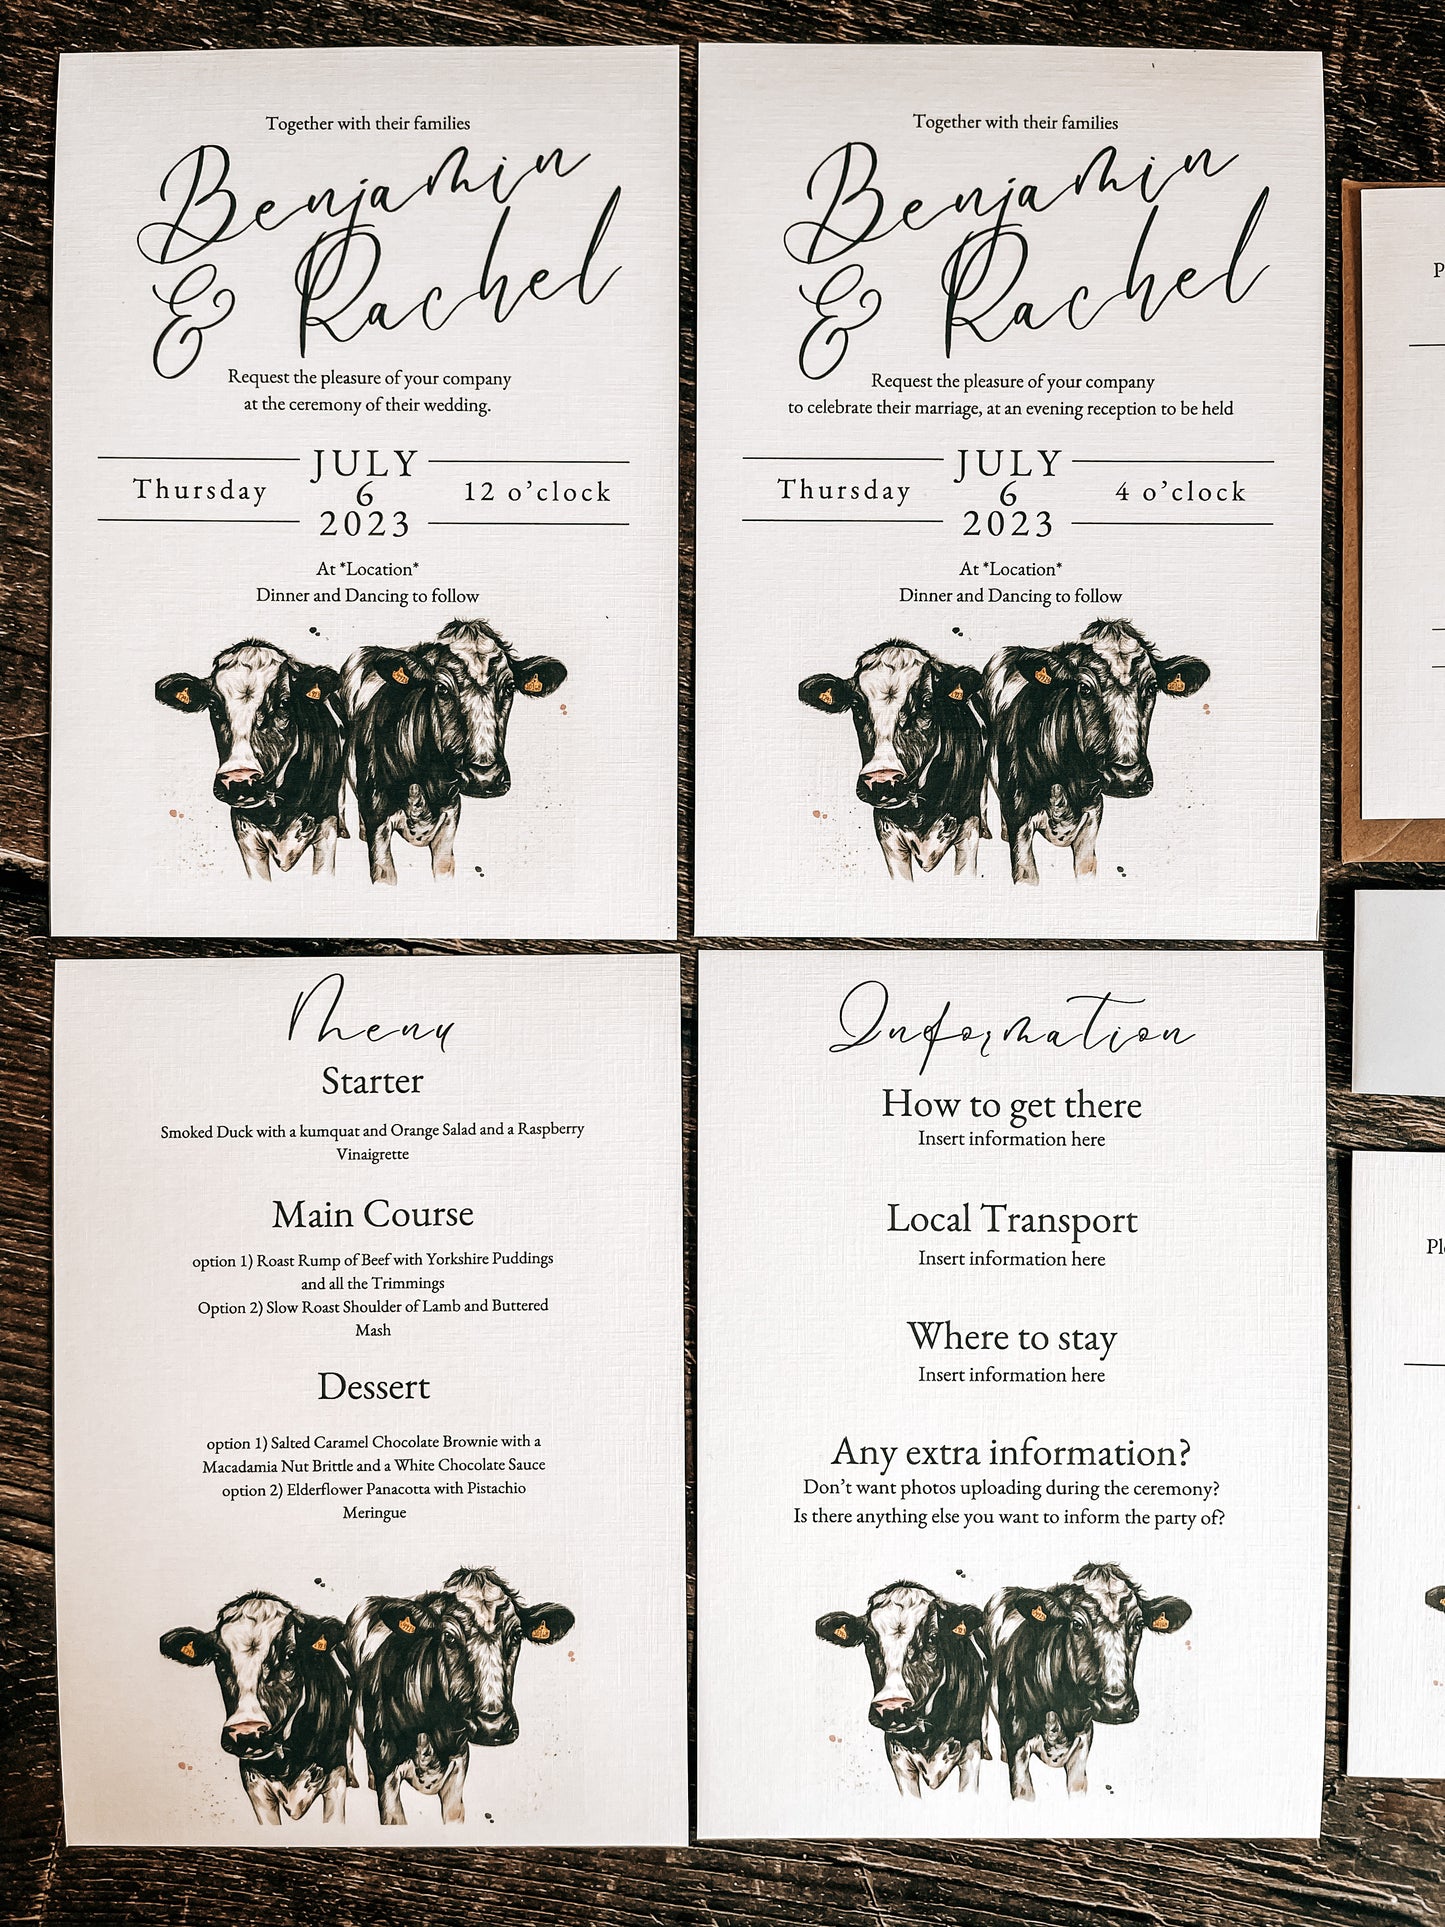 Together with their families
Benjamin
& Rachel
Request the pleasure of your company
at the ceremony of their wedding.
Thursday
JULY
6
2023
12 o'clock
At *Location*
Dinner and Dancing to follow
Together with their families
Benjamin
& Rachel
Request the pleasure of your company
to celebrate their marriage, at an evening reception to be held
Thursday
JULY
6
2023
4 o'clock
At *Location*
Dinner and Dancing to follow
Menu
Starter
Smoked Duck with a kumquat and Orange Salad and a Raspberry
Vinaigrette
Main Course
option 1) Roast Rump of Beef with Yorkshire Puddings
and all the Trimmings
Option 2) Slow Roast Shoulder of Lamb and Buttered
Mash
Dessert
option 1) Salted Caramel Chocolate Brownie with a
Macadamia Nut Brittle and a White Chocolate Sauce
option 2) Elderflower Panacotta with Pistachio
Meringue
Information
How to get there
Insert information here
Local Transport
Insert information here
Where to stay
Insert information here
Any extra information?
Don't want photos uploading during the ceremony?
Is there anything else you want to inform the party of?